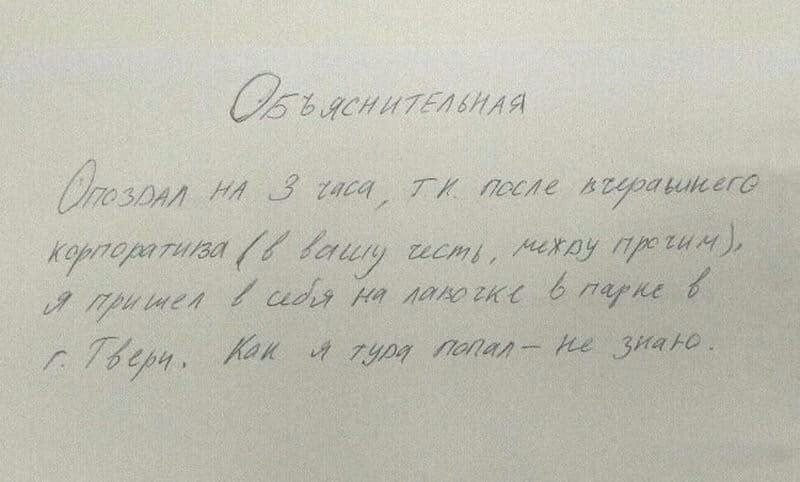 Объяснительная
Опоздал на 3 часа, т.к. после вчерашнего
корпоратива (в вашу честь, между прочим),
я пришел в себя на лавочке в парке в
г. Твери. Как я туда попал – не знаю.